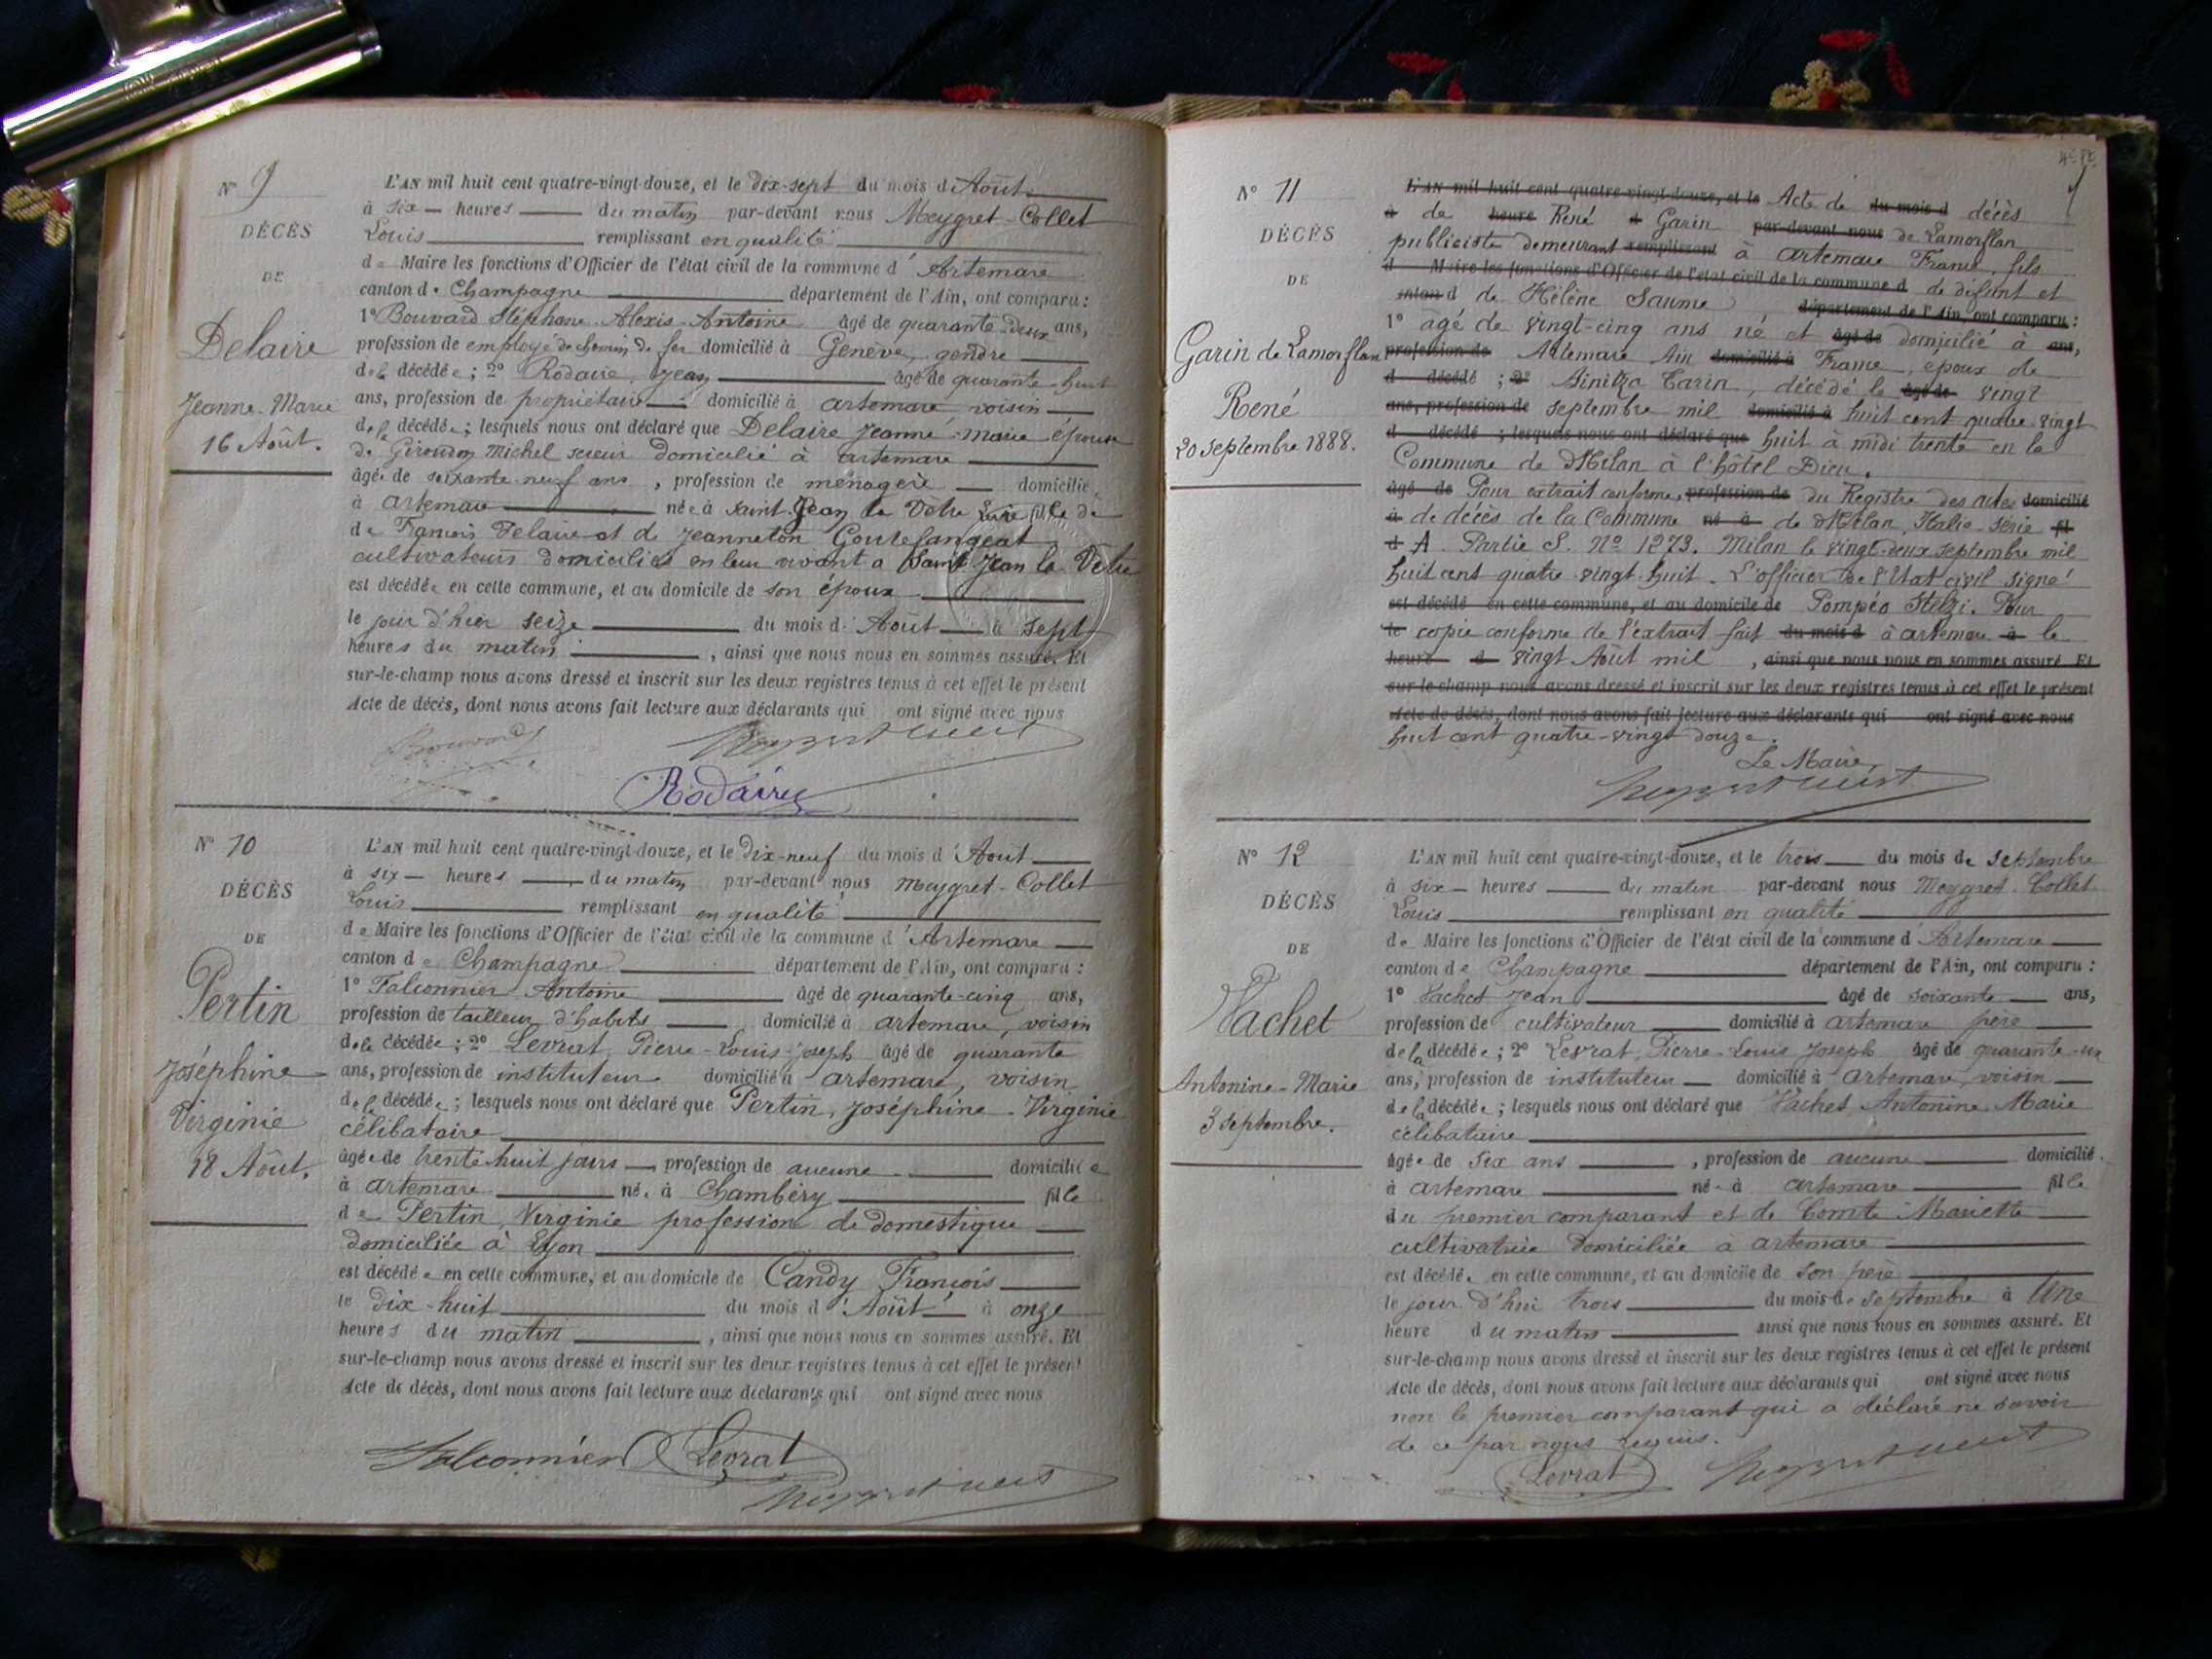 N° 9
DÉCÈS
DE
Delaire
Jeanne-Marie
16 Août.
L'AN mil huit cent quatre-vingt-douze, et le dix-sept du mois d'Août
à six heures du matin par-devant nous Meygret-Collet
Louis remplissant en qualité
de Maire les fonctions d'Officier de l'état civil de la commune d'Artemare
canton de Champagne département de l'Ain, ont comparu :
1° Bouvard Stéphane-Alexis-Antoine âgé de quarante-deux ans,
profession de employé de chemin de fer domicilié à Genève, gendre
de la décédée ; 2° Rodaire, Jean âgé de quarante-huit
ans, profession de propriétaire domicilié à Artemare voisin
de la décédée ; lesquels nous ont déclaré que Delaire Jeanne-Marie épouse
de Giroudon Michel scieur domicilié à Artemare
âgée de soixante-neuf ans, profession de ménagère domiciliée
à Artemare née à Saint-Jean la Vêtre Loire fille de
de François Delaire et de Jeanneton Goutefangeat
cultivateurs domiciliés en leur vivant à Saint Jean la Vêtre
est décédée en cette commune, et au domicile de son époux
le jour d'hier seize du mois d'Août à sept
heures du matin, ainsi que nous nous en sommes assuré. Et
sur-le-champ nous avons dressé et inscrit sur les deux registres tenus à cet effet le présent
Acte de décès, dont nous avons fait lecture aux déclarants qui ont signé avec nous
Bouvard
Rodaire
N° 10
DÉCÈS
DE
Pertin
Joséphine
Virginie
18 Août.
L'AN mil huit cent quatre-vingt-douze, et le dix-neuf du mois d'Août
à six heures du matin par-devant nous Meygret-Collet
Louis remplissant en qualité
de Maire les fonctions d'Officier de l'état civil de la commune d'Artemare
canton de Champagne département de l'Ain, ont comparu :
1° Falconnier Antoine âgé de quarante-cinq ans,
profession de tailleur d'habits domicilié à Artemare, voisin
de la décédée ; 2° Levrat, Pierre-Louis-Joseph âgé de quarante
ans, profession de instituteur domicilié à Artemare, voisin
de la décédée ; lesquels nous ont déclaré que Pertin, Joséphine-Virginie
célibataire
âgée de trente-huit jours profession de aucune domiciliée
à Artemare née à Chambéry fille
de Pertin, Virginie profession de domestique
domiciliée à Lyon
est décédée en cette commune, et au domicile de Candy François
le dix-huit du mois d'Août à onze
heures du matin, ainsi que nous nous en sommes assuré. Et
sur-le-champ nous avons dressé et inscrit sur les deux registres tenus à cet effet le présent
Acte de décès, dont nous avons fait lecture aux déclarants qui ont signé avec nous
Falconnier Levrat
N° 11
DÉCÈS
DE
Garin de Lamorflan
René
20 septembre 1888.
L'AN mil huit cent quatre-vingt-douze, et le Acte de du mois d décès
à de heure René d Garin par-devant nous de Lamorflan
publiciste demeurant remplissant à Artemare France, fils
d Maire les fonctions d'Officier de l'état civil de la commune d de défunt et
canton d de Hélène Saume département de l'Ain, ont comparu :
1° âgé de vingt-cinq ans né et âgé de domicilié à ans,
profession de Artemare Ain domicilié à France, époux de
d décédé ; 2° Tarin, décédé le âgé de vingt
ans, profession de septembre mil domicilié à huit cent quatre-vingt
d décédé ; lesquels nous ont déclaré que huit à midi trente en la
Commune de Milan à l'hôtel Dieu.
âgé de Pour extrait conforme, profession de du Registre des actes domicilié
à de décès de la Commune né à de Milan, Italie série fil
d A. Partie S. N° 1273. Milan le vingt-deux septembre mil
huit cent quatre-vingt-huit. L'officier de l'Etat civil signé
est décédé en cette commune, et au domicile de Pompéo Stelzi. Pour
le copie conforme de l'extrait fait du mois d à Artemare à le
heure d vingt Août mil, ainsi que nous nous en sommes assuré. Et
sur-le-champ nous avons dressé et inscrit sur les deux registres tenus à cet effet le présent
Acte de décès, dont nous avons fait lecture aux déclarants qui ont signé avec nous
huit cent quatre-vingt douze.
Le Maire,
N° 12
DÉCÈS
DE
Vachet
Antonine-Marie
3 septembre.
L'AN mil huit cent quatre-vingt-douze, et le trois du mois de septembre
à six heures du matin par-devant nous Meygret-Collet
Louis remplissant en qualité
de Maire les fonctions d'Officier de l'état civil de la commune d'Artemare
canton de Champagne département de l'Ain, ont comparu :
1° Vachet Jean âgé de soixante ans,
profession de cultivateur domicilié à Artemare père
de la décédée ; 2° Levrat, Pierre-Louis Joseph âgé de quarante-un
ans, profession de instituteur domicilié à Artemare, voisin
de la décédée ; lesquels nous ont déclaré que Vachet Antonine Marie
célibataire
âgée de six ans, profession de aucune domicilié
à Artemare née à Artemare fille
du premier comparant et de Comte Mariette
cultivatrice domiciliée à Artemare
est décédée en cette commune, et au domicile de son père
le jour d'hui trois du mois de septembre à une
heure du matin ainsi que nous nous en sommes assuré. Et
sur-le-champ nous avons dressé et inscrit sur les deux registres tenus à cet effet le présent
Acte de décès, dont nous avons fait lecture aux déclarants qui ont signé avec nous
non le premier comparant qui a déclaré ne savoir
de ce par nous requis.
Levrat